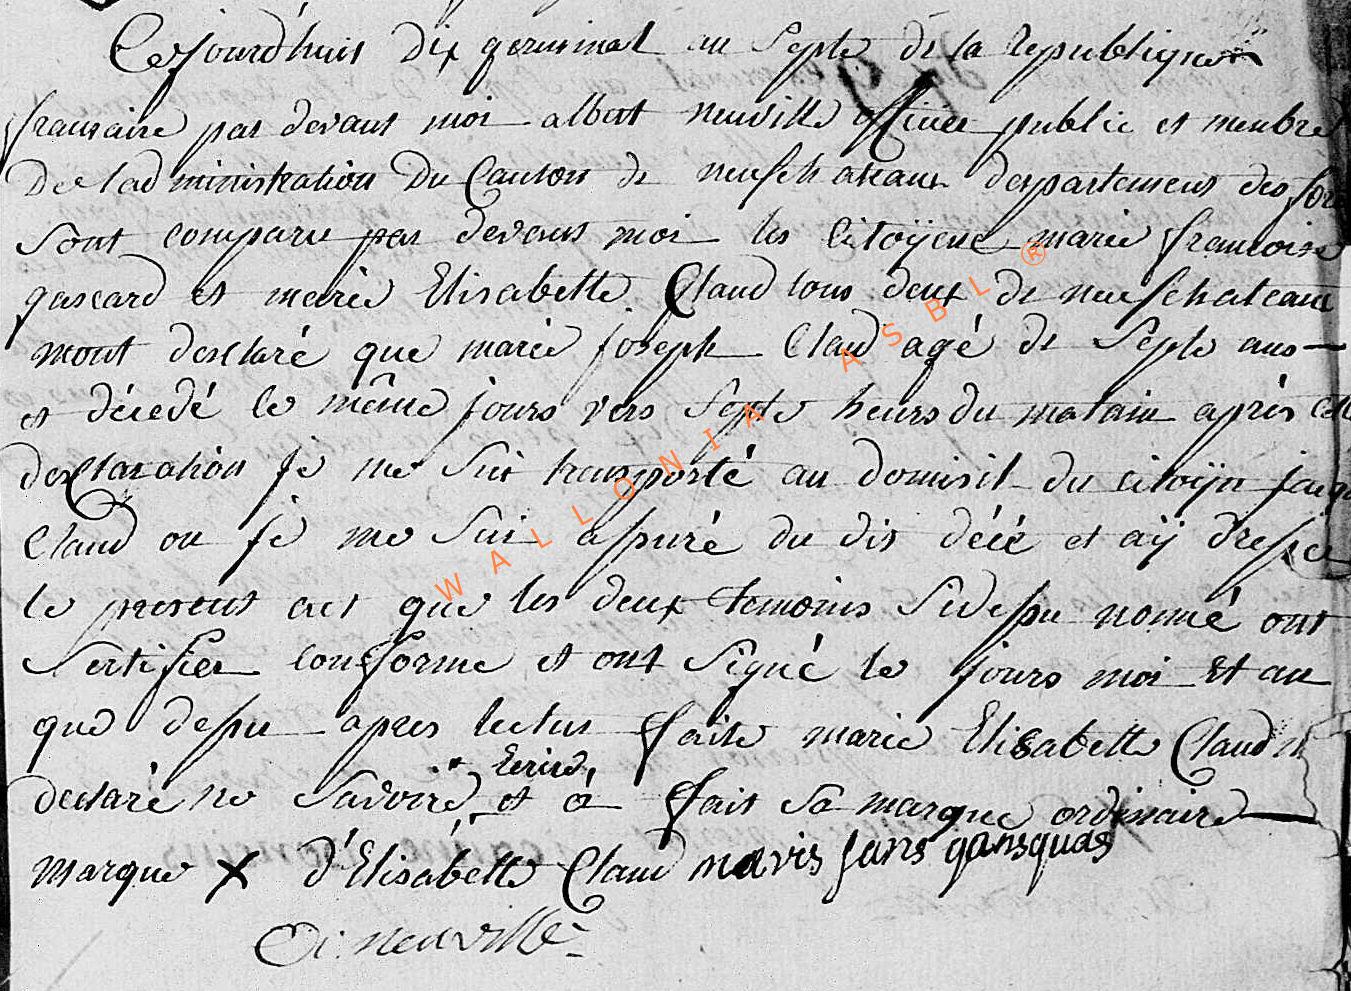 Cejourd'huis dix germinal an Septe de la republique
francaise par devant moi albert neuville officier public et menbre
De l'administration Du Canton de neufchateaux despartement des fore
sont comparu par devant moi les citoÿene marie francoise
gascard et marie Elisabette Claud tous deux de neufchateau
mont desclaré que marie joseph Claud agé de Septe ans
et décedé le même jours vers Septe heurs du matain après cet
desclaration je me suis transporté au domisil du citoÿn jacq
Claud ou je me suis assuré du dis décé et aÿ dresser
le present act que les deux temoins sidessu nommé ont
Sertifier conforme et ont Signé le jours moi Et an
que dessu apres lectur faite marie Elisabette Claud n
declaré ne savoire Ecrire et a fait sa marque ordinaire
marque X d'Elisabette Claud mavis fans gansquas
neuville
WALLONIA ASBL ®